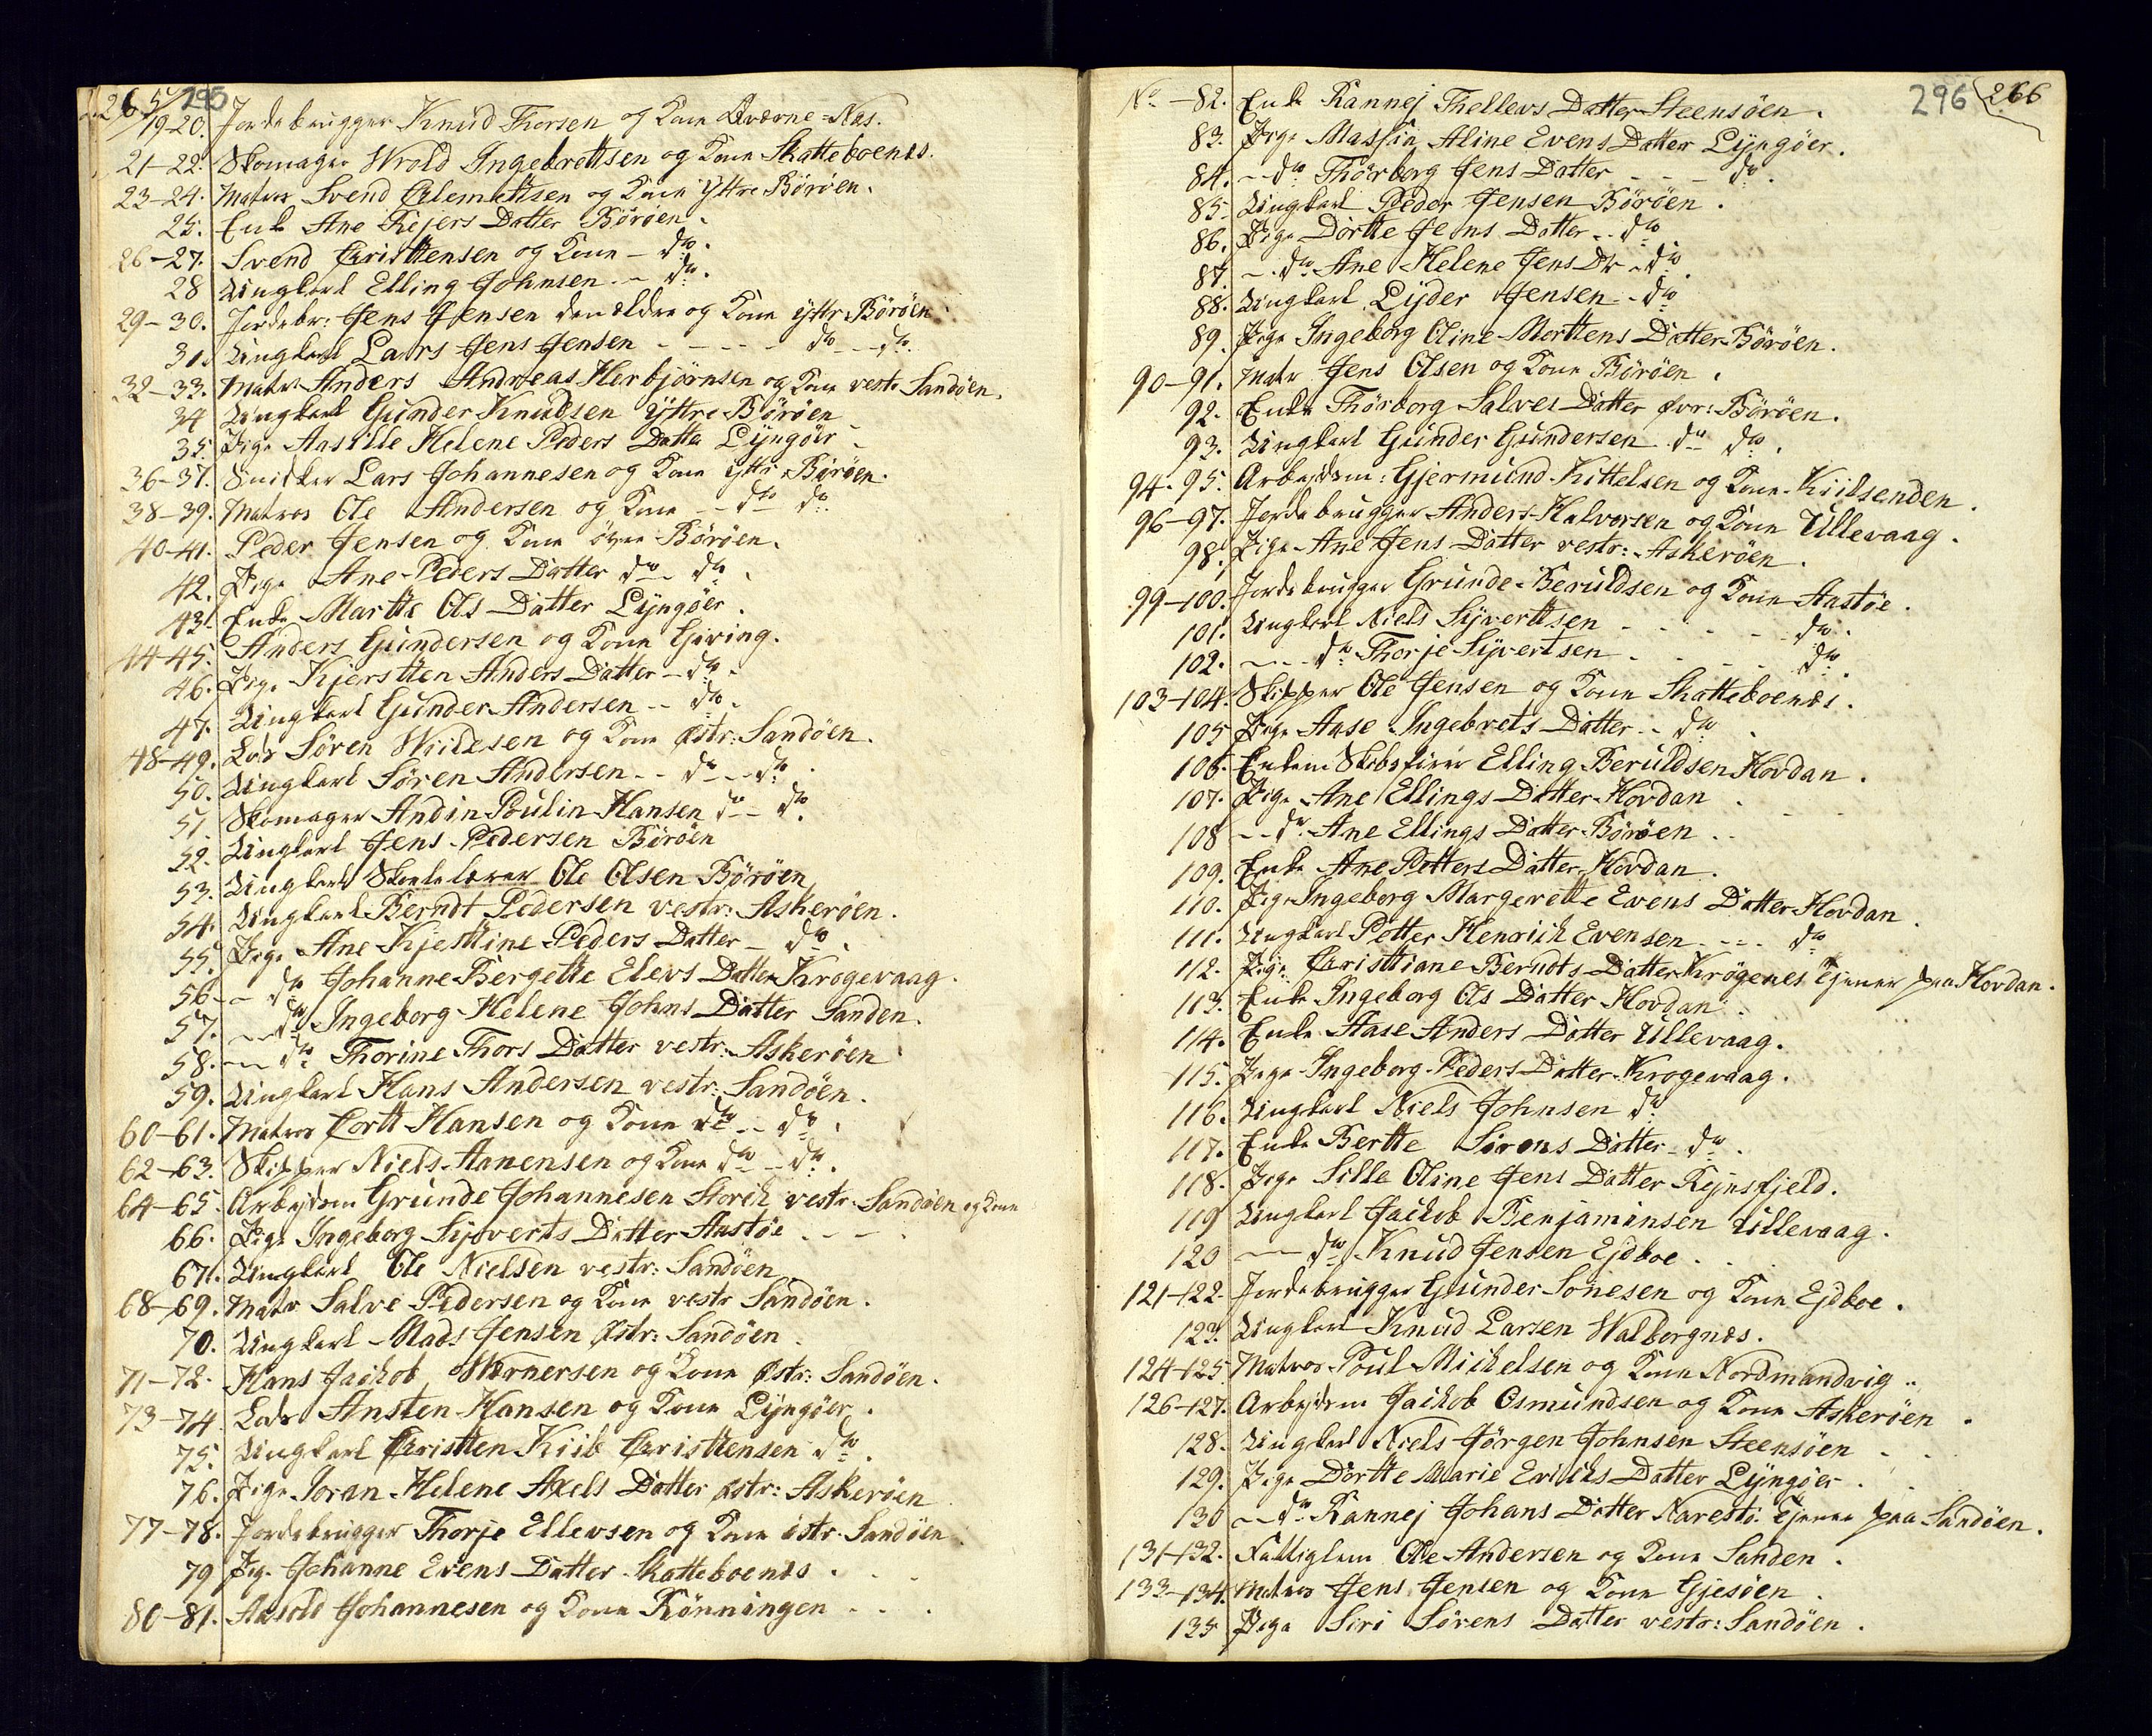 265/295
19-20. Jordebrugger Knud Thorsen og Kone Qværne=Næs.
21-22. Skomager Wrold Ingebrettsen og Kone Skatteboenæs.
23-24. Matros Svend Clemettsen og Kone Yttre Böröen.
25. Enke Ane Rejers Datter Böröen.
26-27. Svend Christtensen og Kone - do.
28 Ungkarl Elling Johnsen - - do.
29-30. Jordebr: Jens Jensen den ældre og Kone yttr. Böröen
31. Ungkarl Lars Jens Jensen - - - - - do - - do.
32-33. Matrs Anders Andreas Herbjörnsen og Kone vestr Sandöen.
34 Ungkarl Gunder Knudsen Yttre Böröen
35. Pige Aasille Helene Peders Datter Lyngöer -
36-37. Snidker Lars Johannesen og Kone yttr Böröen.
38-39. Matros Ole Andersen og Kone - - do do.
40-41. Peder Jensen og Kone övre Böröen.
42. Pige Ane Peders Datter do - do.
43. Enke Marthe Ols Datter Lyngöer.
44-45. Anders Gundersen og Kone Giving.
46. Pige Kjerstten Anders Datter - do.
47. Ungkarl Gunder Andersen - - do.
48-49. Lods Sören Wiilesen og Kone Östr: Sandöen.
50. Ungkarl Sören Andersen - - do - - do.
51 Skomager Andin Poulin Hansen do - - do.
52. Ungkarl Jens Pedersen Böröen
53. Ungkarl Skolelærer Ole Olsen Böröen
54. Ungkarl Berndt Pedersen vestr: Askeröen.
55. Pige Ane Kjesttine Peders Datter - do.
56 - - do Johanne Bergette Elevs Datter Krogevaag.
57. - - do Ingeborg Helene Johns Datter Sanden.
58. - - do Thorine Thors Datter vestr: Askeröen
59. Ungkarl Hans Andersen vestr: Sandöen.
60-61. Matros Cortt Hansen og Kone do - - do.
62-63. Skipper Niels Aanensen og Kone do - - do.
64-65. Arbejdsm Grunde Johannesen Storch vestr. Sandöen og Kone
66. Pige Ingeborg Syverts Datter Aastöe - - -
67. Ungkarl Ole Nielsen vestr: Sandöen
68-69. Matr Salve Pedersen og Kone vestr Sandöen.
70. Ungkarl Mads Jensen Östr: Sandöen.
71-72. Hans Jachob Wernersen og Kone Östr: Sandöen.
73-74. Lods Ansten Hansen og Kone Lyngöer.
75. Ungkarl Christten Kiil Christtensen do.
76. Pige Joran Helene Axels Datter östr: Askeröen
77-78. Jordebrugger Thorje Ellevsen og Kone östr. Sandöen.
79 Pige Johanne Evens Datter Skatteboenæs . - -
80-81. Aasold Johannesen og Kone Rönningen - - .
296 266
No - 82. Enke Rannej Thellevs Datter Steensöen.
83. Pige Massin Aline Evens Datter Lyngöer.
84. - - do Thörborg Jens Datter - - - do.
85. Ungkarl Peder Jensen Böröen.
86. Pige Dortte Jens Datter - - do
87. - - do Ane Helene Jens Dtr - do.
88. Ungkarl Lyder Jensen - - do
89. Pige Ingeborg Oline Morttens Datter Böröen.
90-91. Matr Jens Olsen og Kone Böröen.
92. Enke Thörborg Salves Datter övr: Böröen.
93. Ungkarl Gunder Gundersen do do.
94-95. Arbejdsm: Gjermund Kittelsen og Kone Kiilsenden.
96-97. Jordebrugger Anders Halvorsen og Kone Ullevaag.
98. Pige Ane Jens Datter vestr: Askeröen.
99-100. Jordebrugger Grunde Beruldsen og Kone Aastöe.
101. Ungkarl Niels Syverttsen - - - - do.
102. - - - do Thorje Syvertsen - - - - do.
103-104. Skipper Ole Jensen og Kone Skatteboenæs.
105 Pige Aase Ingebrets Datter - - do
106. Enkem Skibsfører Elling Beruldsen Hovdan.
107. Pige Ane Ellings Datter Hovdan
108 - - do. Ane Ellings Datter Böröen . .
109. Enke Ane Petters Datter Hovdan.
110. Pige Ingeborg Margerette Evens Datter Hovdan.
111. Ungkarl Petter Henrich Evensen - - - do
112. Pige Christtiane Berndts Datter Krögenes Tjener paa Hovdan.
113. Enke Ingeborg Ols Datter Hovdan.
114. Enke Aase Anders Datter Ullevaag.
115. Pige Ingeborg Peders Datter Krogevaag.
116. Ungkarl Niels Johnsen do
117. Enke Bertte Sörens Datter - do.
118. Pige Sille Oline Jens Datter Rejnsfjeld.
119 Ungkarl Jachob Benjaminsen Ullevaag.
120 - - do Knud Jensen Ejdboe . .
121-122. Jordebrugger Gunder Sonesen og Kone Ejdboe.
123. Ungkarl Knud Larsen Walborgnæs.
124-125 Matros Poul Michelsen og Kone Nordmandvig.
126-127. Arbejdsm Jachob Osmundsen og Kone Askeröen.
128. Ungkarl Niels Jörgen Johnsen Steensöen -
129. Pige Dortte Marie Erichs Datter Lyngöer.
130 - - do Rannej Johans Datter Narestö. Tjener paa Sandöen.
131-132. Fattiglem Ole Andersen og Kone Sanden.
133-134. Matros Jens Jensen og Kone Gjesöen.
135 Pige Siri Sörens Datter vestr: Sandöen.